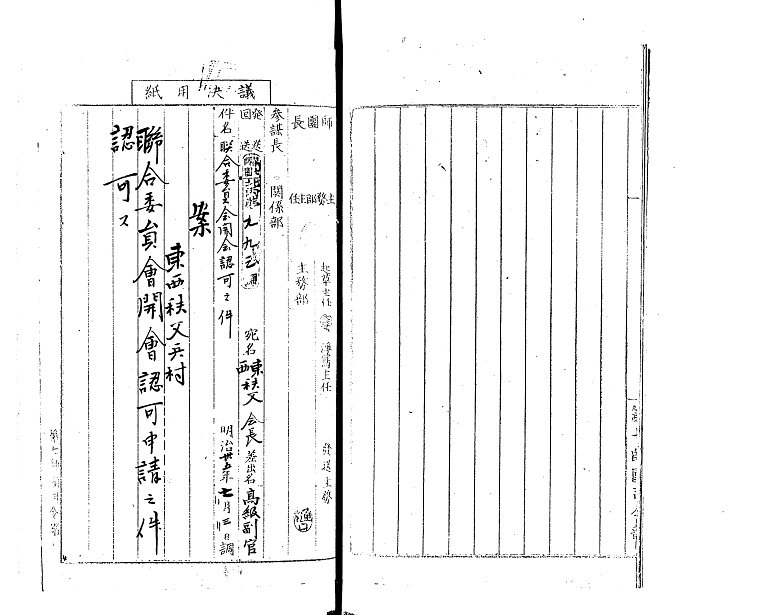 議決用紙
師團長
主務部主任
起草主任
淨寫主任
發送主務
參謀長
関係部
主務部
発送
回送
宛名
東西秩父会長
差出名
高級副官
件名
聯合委員会開会認可之件
明治廿五年七月三日調
案
東西秩父兵村
聯合委員會開會認可申請之件
認可ス